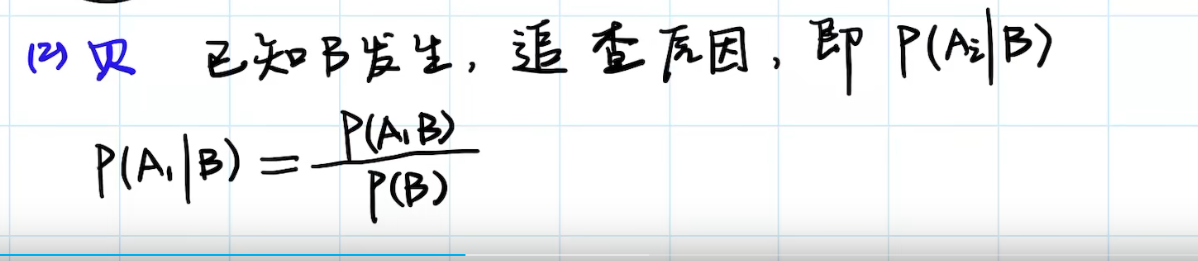 (2) 贝 已知B发生,追查原因,即 P(Aᵢ|B)
P(A₁|B) = P(A₁B) / P(B)